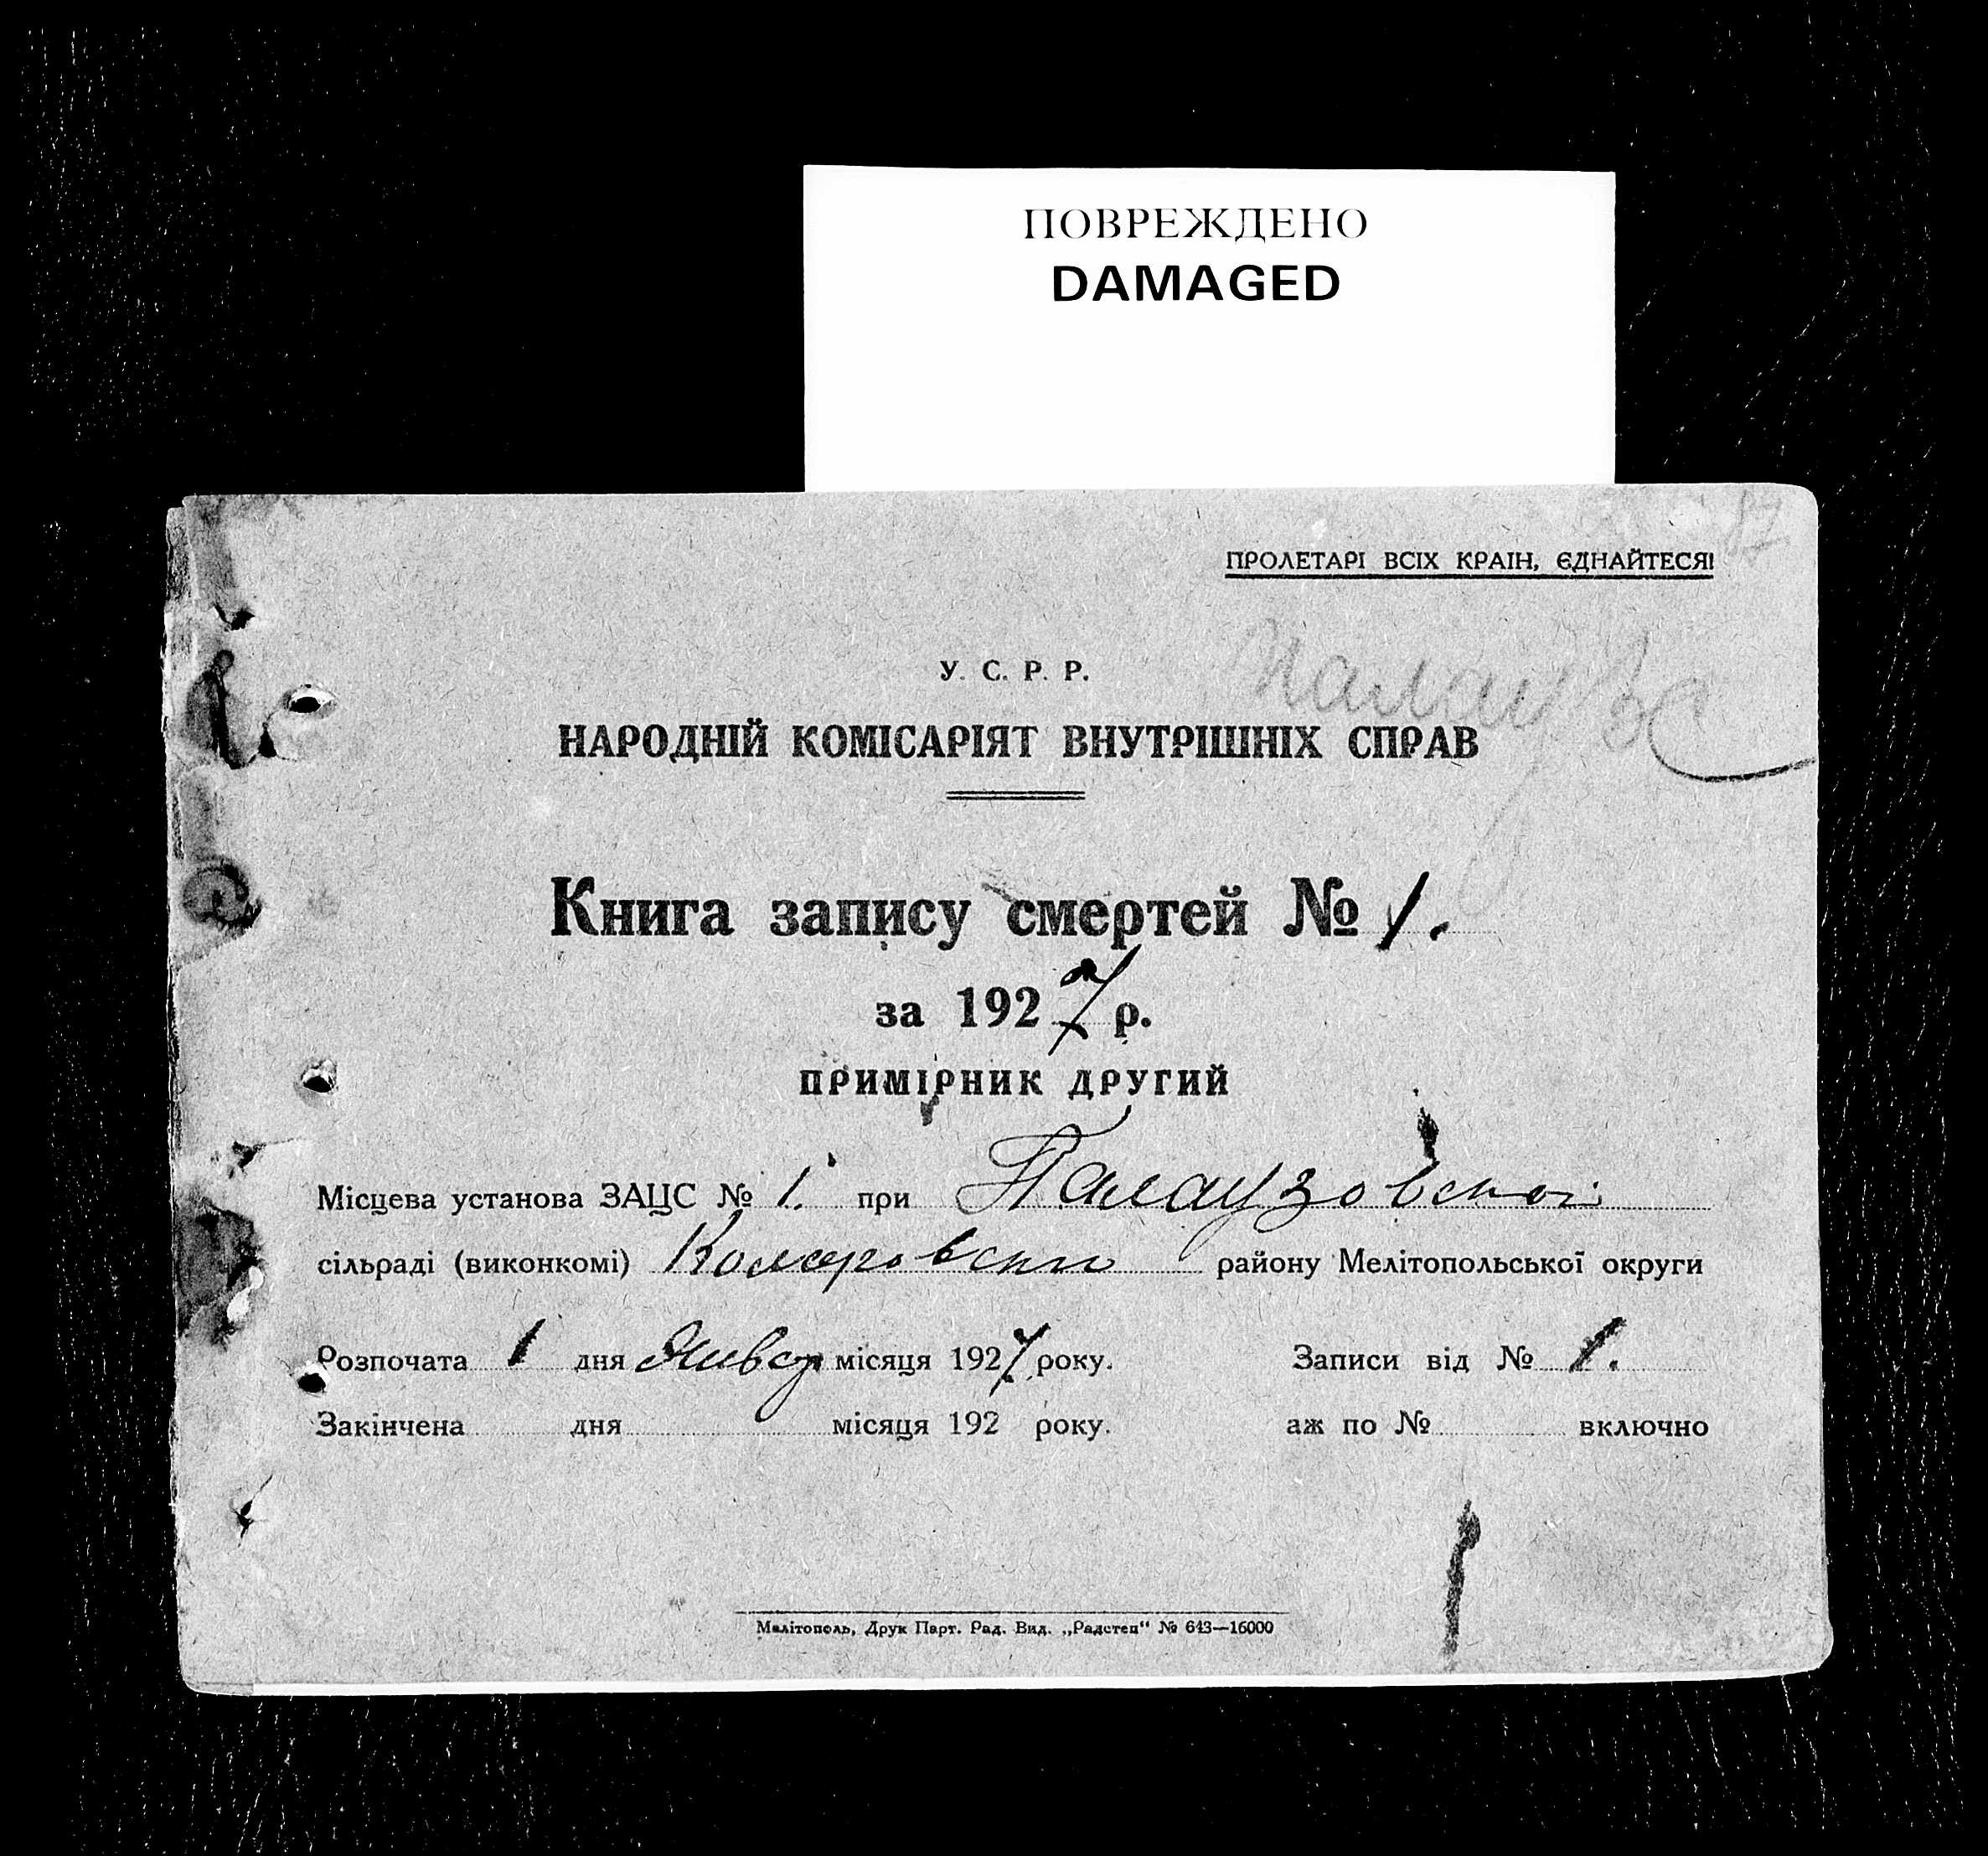 ПОВРЕЖДЕНО
DAMAGED
87
ПРОЛЕТАРІ ВСІХ КРАІН, ЄДНАЙТЕСЯ!
У. С. Р. Р.
НАРОДНІЙ КОМІСАРІЯТ ВНУТРІШНІХ СПРАВ
Книга запису смертей № 1.
за 1927 р.
ПРИМІРНИК ДРУГИЙ
Місцева установа ЗАЦС № 1. при Палаузовской
сільраді (виконкомі) района району Мелітопольської округи
Розпочата 1 дня Января місяця 1927 року. Записи від № 1.
Закінчена дня місяця 192 року. аж по № включно
Мелітополь, Друк Парт. Рад. Вид. „Радстеп“ № 643—16000